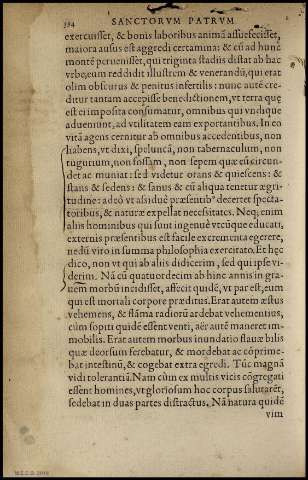 394 SANCTORVM PATRVM
exercuisset, & bonis laboribus animã assuefecisset,
maiora ausus est aggredi certamina: & cũ ad hunc
montẽ peruenisset, qui triginta stadiis distat ab hac
vrbe, eum reddidit illustrem & venerandũ, qui erat
olim obscurus & penitus infertilis: nunc autẽ cre-
ditur tantam accepisse benedictionem, vt terra quę
est ei imposita consumatur, omnibus qui vndique
adueniunt, ad vtilitatem eam exportantibus. In eo
vitã agens cernitur ab omnibus accedentibus, non
habens, vt dixi, speluncã, non tabernaculum, non
tugurium, non fossam, non sepem quæ eũ circun-
det ac muniat: sed videtur orans & quiescens: &
stans & sedens: & sanus & cũ aliqua tenetur ægri-
tudine: adeò vt assiduè præsentibꝰ decertet specta-
toribus, & naturæ expellat necessitates. Neq; enim
aliis hominibus qui sunt ingenuè vtcũque educati,
externis præsentibus est facile excrementa egerere,
nedũ viro in summa philosophia exercitato. Et hęc
dico, non vt qui ab aliis didicerim, sed qui ipse vi-
derim. Nã cũ quatuordecim ab hinc annis in gra-
uem morbũ incidisset, affecit quidẽ, vt par est, eum
qui est mortali corpore præditus. Erat autem æstus
vehemens, & flãma radiorũ ardebat vehementius,
cùm sopiti quidẽ essent venti, aër autẽ maneret im-
mobilis. Erat autem morbus inundatio flauæ bilis
quæ deorsum ferebatur, & mordebat ac cõprime-
bat intestinũ, & cogebat extra egredi. Tũc magnã
vidi tolerantiã. Nam cùm ex multis vicis cõgregati
essent homines, vt gloriosum hoc corpus salutarẽt,
sedebat in duas partes distractus. Nã natura quidẽ
vim